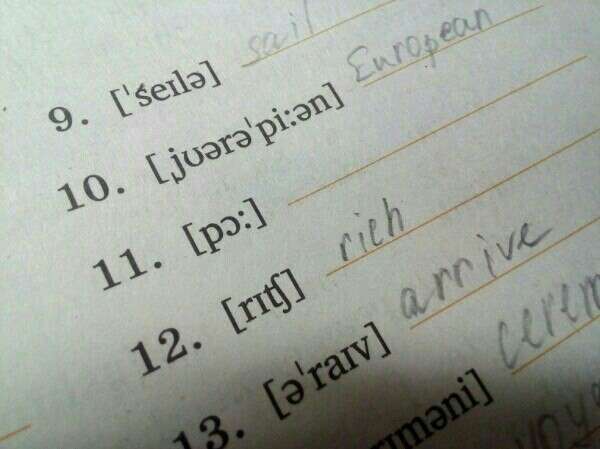 9. [ˈseɪlə] sail
10. [ˌjʊərəˈpiːən] European
11. [pɔː]
12. [rɪtʃ] rich
13. [əˈraɪv] arrive
rɪməni] cerem